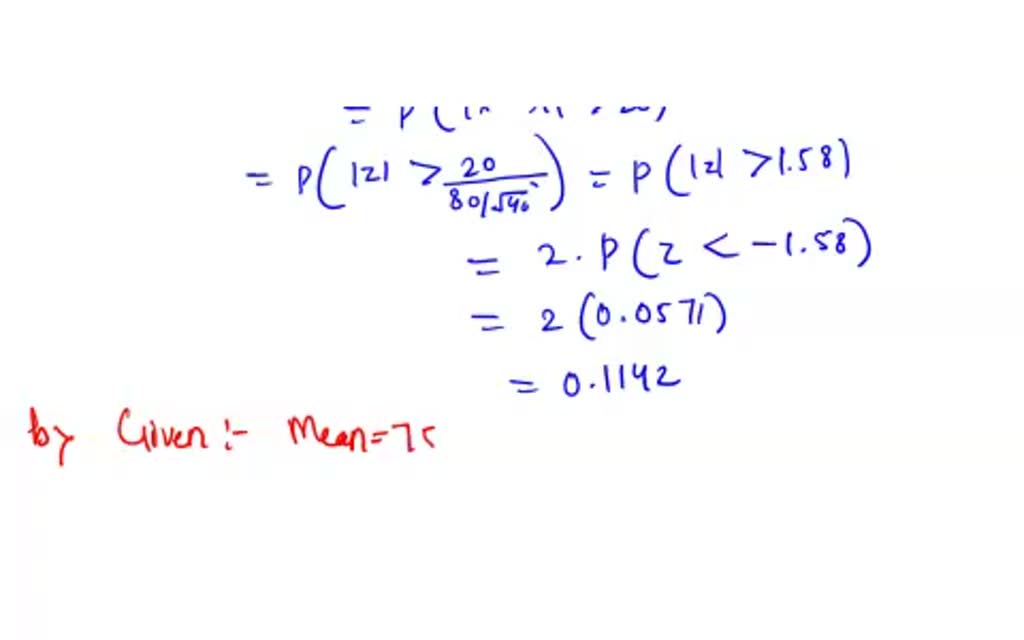 = P(|z| > 20/(80/√40)) = P(|z| > 1.58)
= 2. P(z < -1.58)
= 2 (0.0571)
= 0.1142
by Given :- Mean=75